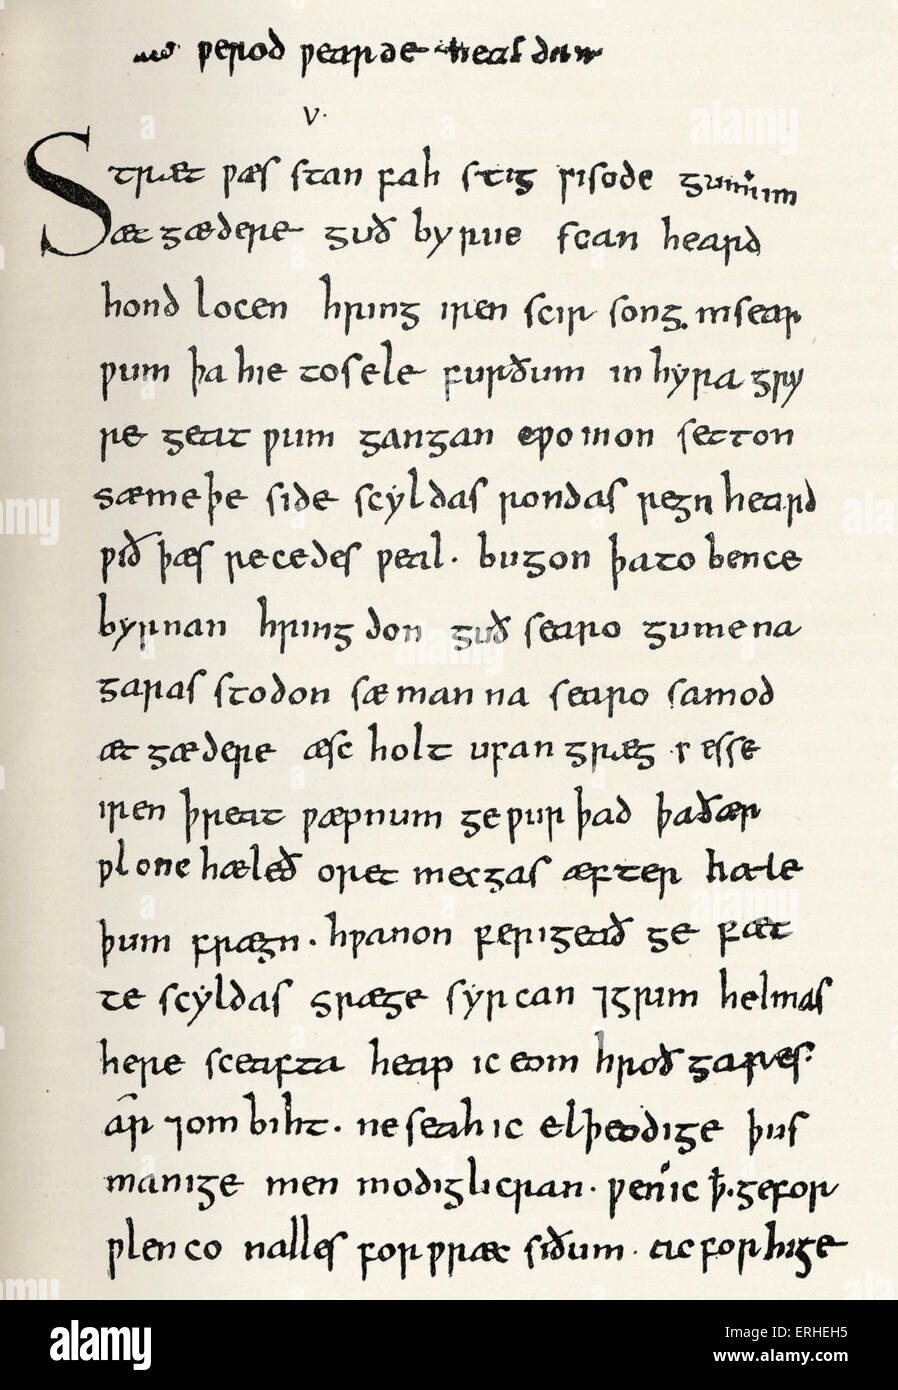 ƿerod ƿearde healdan
V.
Stræt ƿæs stan fah stig ƿisode gumum
æt gædere guð byrne scan heard
hond locen hring iren scir song insear
ƿum þa hie to sele furðum in hyra gry
re geat ƿum gangan cƿomon setton
sæmeþe side scyldas rondas regn heard
ƿið þæs recedes ƿeal. bugon þa to bence
byrnan hringdon guð searo gumena
garas stodon sæmanna searo samod
æt gædere æsc holt ufan græg ƿæs se
iren þreat ƿæpnum geƿurþad þa ðær
ƿlonc hæleð oret mecgas æfter hæle
þum frægn. hƿanon ferigeað ge fæt
te scyldas græge syrcan ⁊grim helmas
here sceafta heap ic eom hroðgares.
ar ⁊ombiht. ne seah ic elþeodige þus
manige men modiglicran. ƿen ic ꝥ. ge for
ƿlenco nalles for ƿræc siðum. ac for hige
alamy
alamy
Image ID: ERHEH5
www.alamy.com